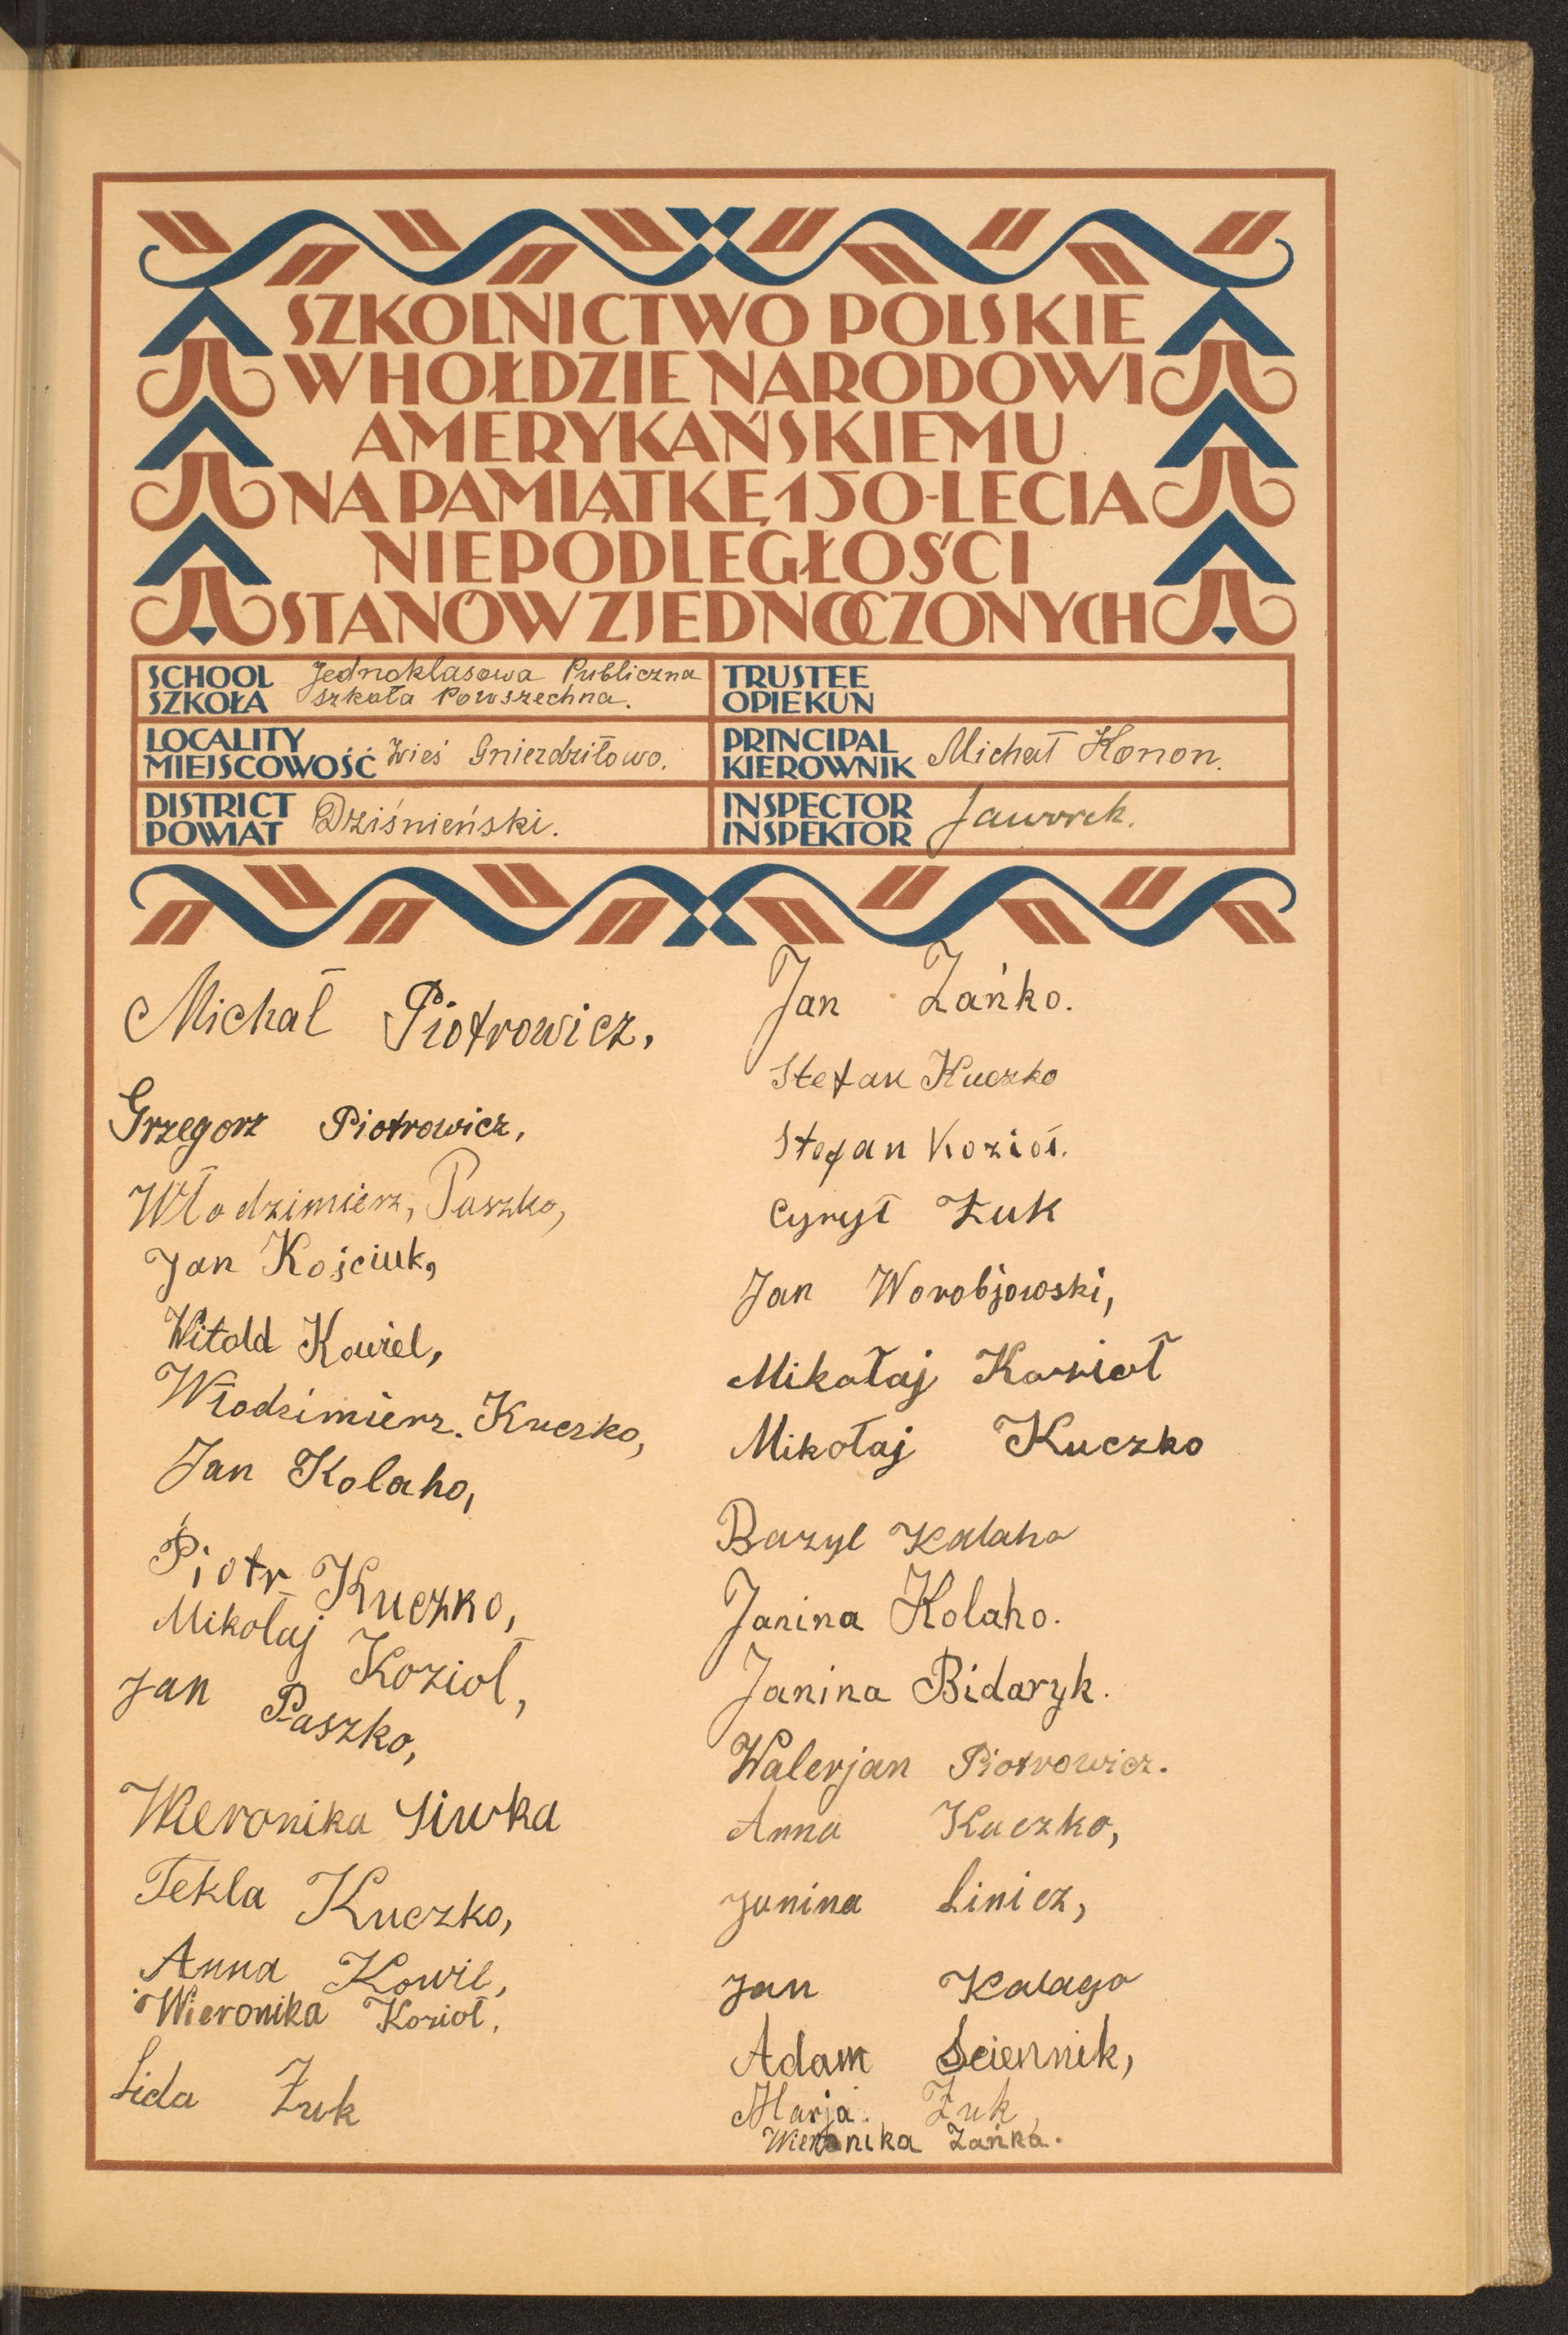 SZKOLNICTWO POLSKIE
W HOŁDZIE NARODOWI
AMERYKAŃSKIEMU
NA PAMIĄTKĘ 150-LECIA
NIEPODLEGŁOŚCI
STANÓW ZJEDNOCZONYCH
SCHOOL
SZKOŁA
Jednoklasowa Publiczna
szkoła Powszechna.
TRUSTEE
OPIEKUN
LOCALITY
MIEJSCOWOŚĆ
Wieś Gniezdziłowo.
PRINCIPAL
KIEROWNIK
Michał Konon.
DISTRICT
POWIAT
Dziśnieński.
INSPECTOR
INSPEKTOR
Jaworek.
Michał Piotrowicz,
Grzegorz Piotrowicz,
Włodzimierz, Paszko,
Jan Kojciuk,
Witold Kowiel,
Włodzimierz. Kuczko,
Jan Kolaho,
Piotr Kuczko,
Mikołaj Kozioł,
Jan Paszko,
Wieronika Siwka
Tekla Kuczko,
Anna Kowil,
Wieronika Kozioł,
Lida Żuk
Jan Zańko.
Stefan Kuczko
Stefan Kozioł.
Cyrył Żuk
Jan Worobjowski,
Mikołaj Kozioł
Mikołaj Kuczko
Bazyl Kalaho
Janina Kolaho.
Janina Bidaryk.
Walerjan Piotrowicz.
Anna Kuczko,
Janina Linicz,
Jan Kalago
Adam Sciennik,
Marja Żuk,
Wieronika Zańka.